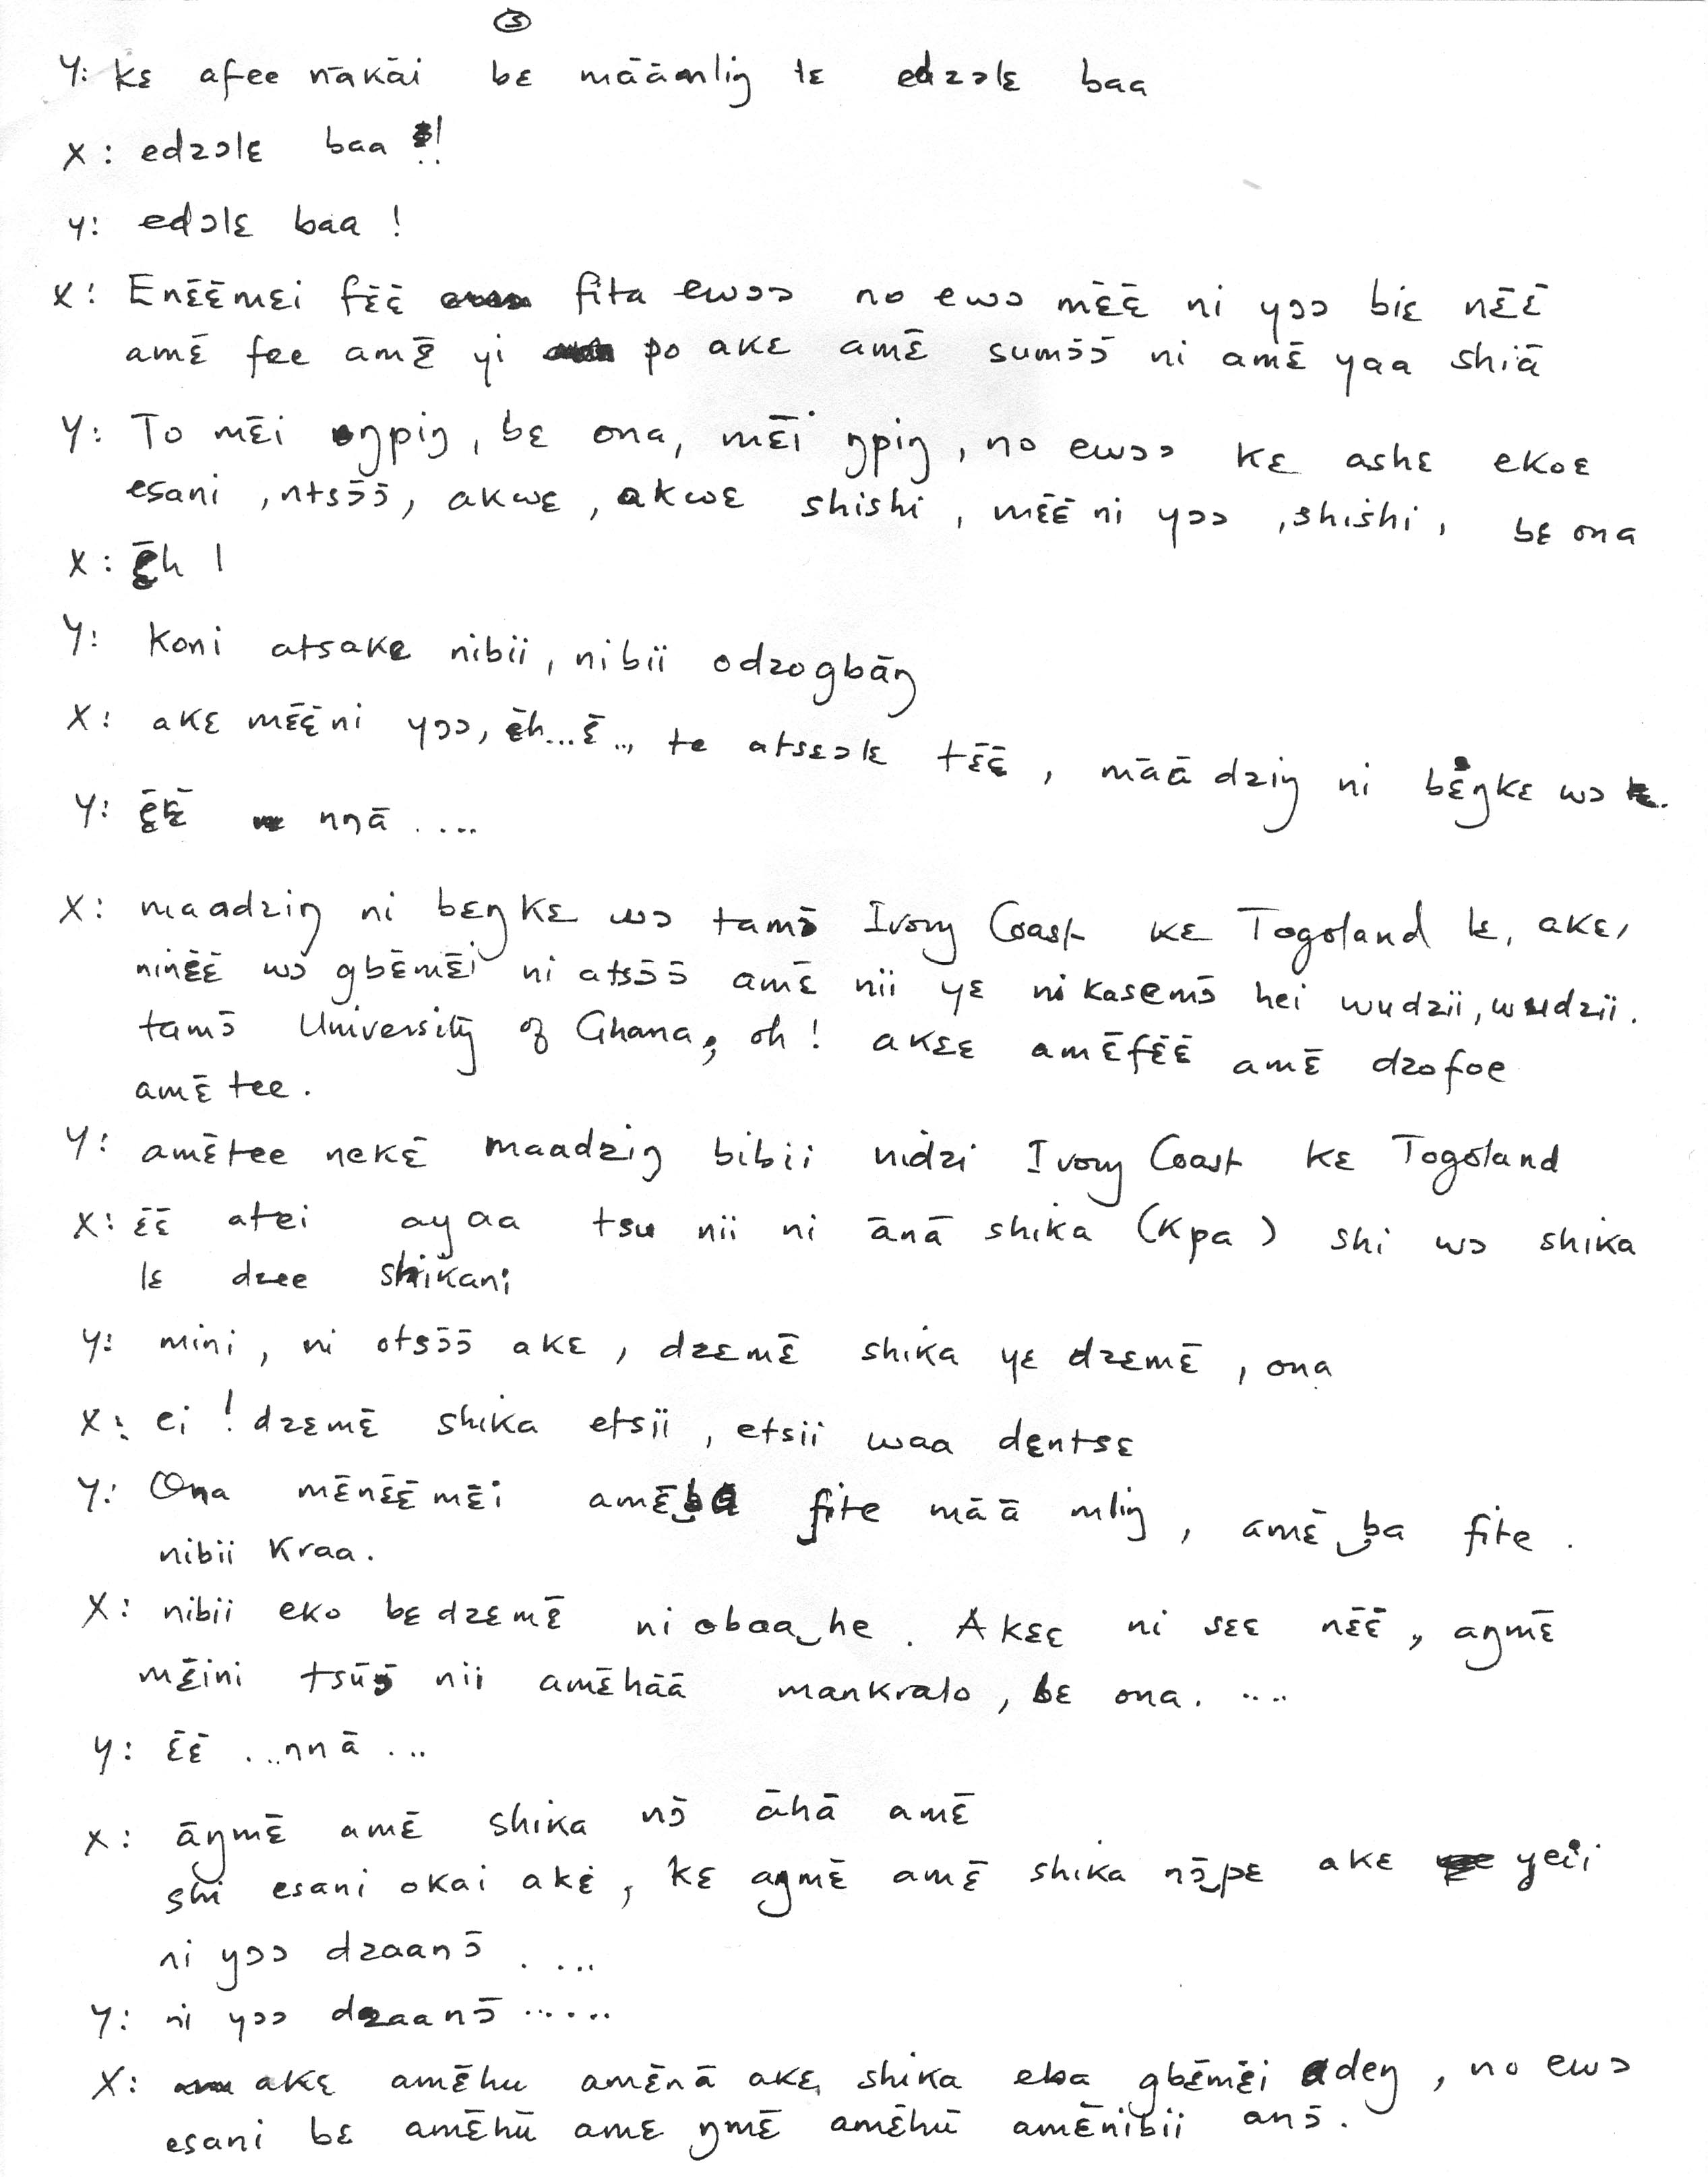 ③
Y: kɛ afee nākāi bɛ māāmliŋ tɛ edzɔlɛ baa
X: edzɔlɛ baa !
Y: edɔlɛ baa !
X: Enɛ̄ɛ̄mɛi fɛ̄ɛ̄ fita ewɔɔ no ewɔ mɛ̄ɛ̄ ni yɔɔ biɛ nɛ̄ɛ̄
amɛ̄ fee amɛ̄ yi po akɛ amɛ̄ sumɔ̄ɔ̄ ni amɛ̄ yaa shiā
Y: To mɛ̄i ŋpiŋ, bɛ ona, mɛ̄i ŋpiŋ, no ewɔɔ kɛ ashɛ ekoɛ
esani, ntsɔ̄ɔ̄, akwɛ, akwɛ shishi, mɛ̄ɛ̄ ni yɔɔ, shishi, bɛ ona
X: ɛ̄h !
Y: koni atsake nibii, nibii odzogbāŋ
X: akɛ mɛ̄ɛ̄ni yɔɔ, ɛ̄h...ɛ̄.., te atsɛɔlɛ tɛ̄ɛ̄, māā dziŋ ni bɛŋkɛ wɔ
Y: ɛ̄ɛ̄ nŋā ....
X: maadziŋ ni bɛŋkɛ wɔ tamɔ̄ Ivory Coast kɛ Togoland lɛ, akɛ,
ninɛ̄ɛ̄ wɔ̄ gbɛ̄mɛ̄i ni atsɔ̄ɔ̄ amɛ̄ nii yɛ nikasemɔ̄ hei wudzii, wudzii.
tamɔ̄ University of Ghana, oh ! akɛɛ amɛ̄fɛ̄ɛ̄ amɛ̄ dzofoe
amɛ̄ tee.
Y: amɛ̄tee nekɛ̄ maadziŋ bibii nidzi Ivory Coast kɛ Togoland
X: ɛ̄ɛ̄ atei ayaa tsu nii ni ānā shika (kpa) shi wɔ shika
lɛ dzee shikani
Y: mini, ni otsɔ̄ɔ̄ akɛ, dzɛmɛ̄ shika yɛ dzɛmɛ̄, ona
X: ei ! dzɛmɛ̄ shika etsii, etsii waa dɛntsɛ
Y: Ona mɛ̄nɛ̄ɛ̄mɛ̄i amɛ̄ba fite māā mliŋ, amɛ̄ ba fite.
nibii kraa.
X: nibii eko bɛ dzɛmɛ̄ ni obaa he. Akɛɛ ni sɛɛ nɛ̄ɛ̄, aŋmɛ̄
mɛ̄ini tsūɔ̄ nii amɛ̄hāā mankralo, bɛ ona. ....
Y: ɛ̄ɛ̄ ...nnā ...
X: āŋmɛ̄ amɛ̄ shika nɔ̄ āhā amɛ̄
shi esani okai akɛ, kɛ aŋmɛ̄ amɛ̄ shika nɔ̄pɛ akɛ yeii
ni yɔɔ dzaanɔ̄ ....
Y: ni yɔɔ dzaanɔ̄ ......
X: akɛ amɛ̄hu amɛ̄nā akɛ shika eba gbɛ̄mɛ̄i adeŋ, no ewɔ
esani bɛ amɛ̄hū amɛ ŋmɛ̄ amɛ̄hū amɛ̄nibii anɔ̄.